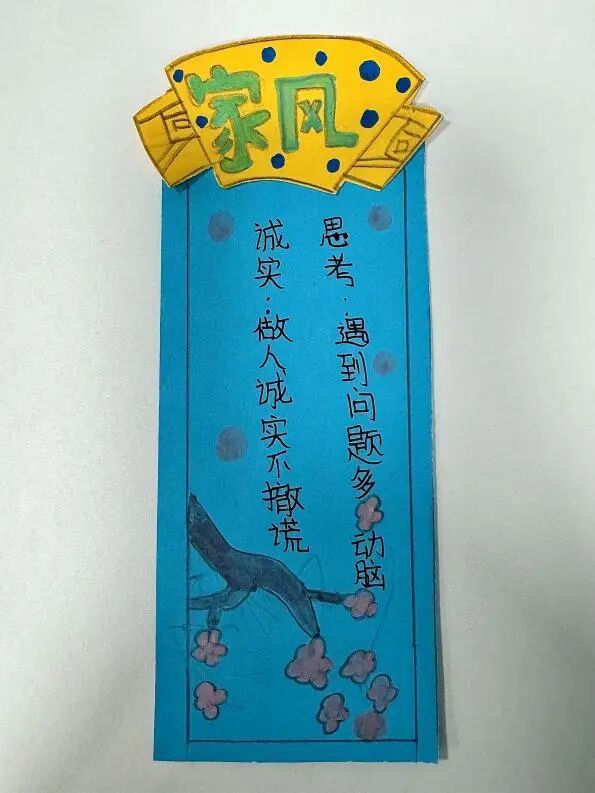 家风
思考：遇到问题多动脑
诚实：做人诚实不撒谎